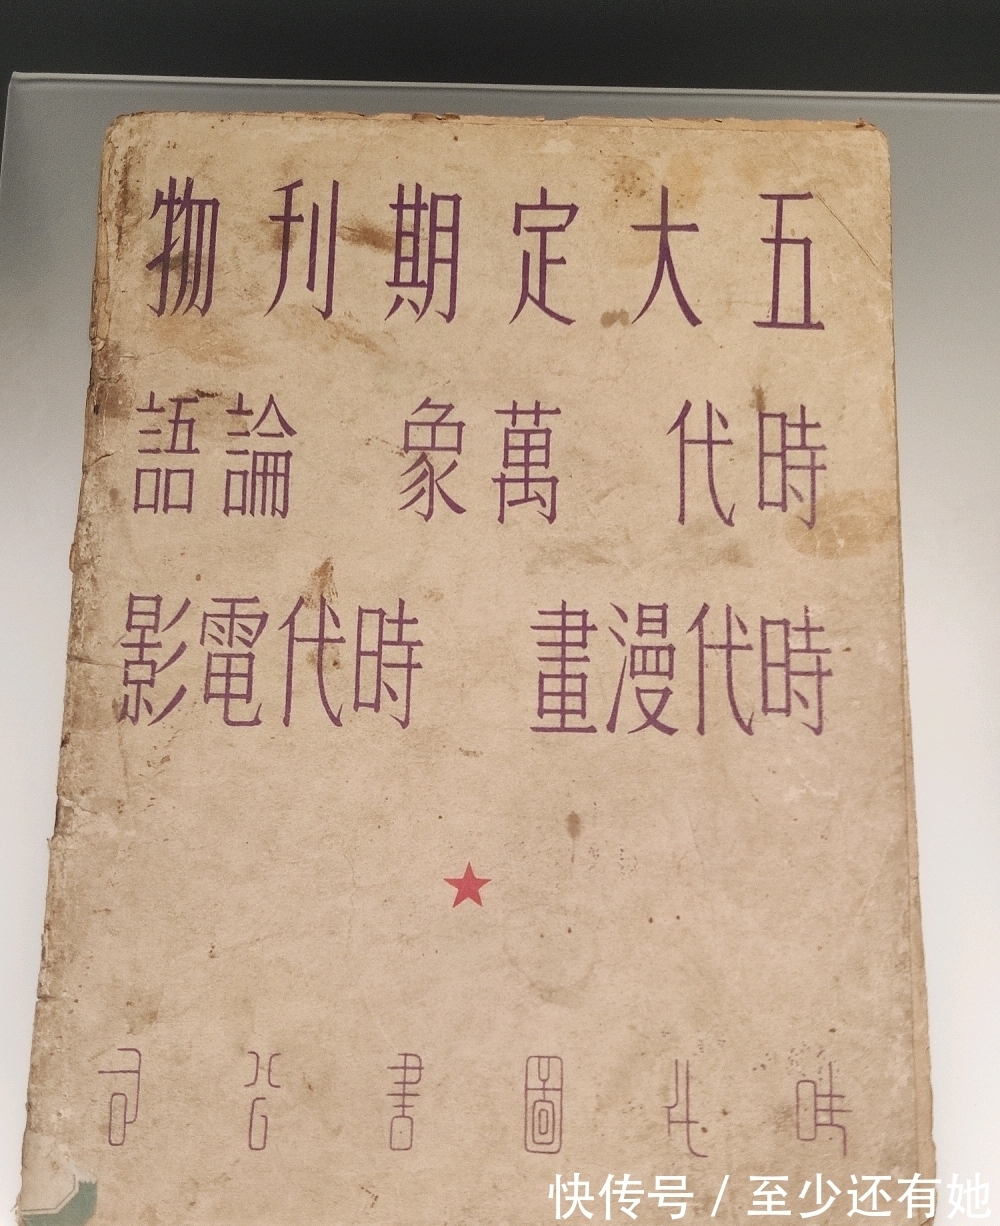 五大定期刊物
時代 萬象 論語
時代漫畫 時代電影
時代圖書公司
快传号 / 至少还有她